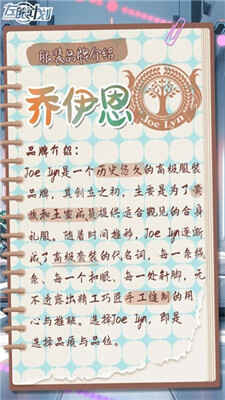 服装品牌介绍
乔伊恩
Joe Lyn
品牌介绍：
Joe Lyn是一个历史悠久的高级服装
品牌，其创立之初，主要是为了贵
族和王室成员提供适合觐见的合身
礼服。随着时间推移，Joe Lyn逐渐
成了高级套装的代名词，每一条线
条、每一个扣眼、每一处针脚，无
不透露出精工巧匠手工缝制的用
心与雅致。选择Joe Lyn，即是
选择品质与品位。